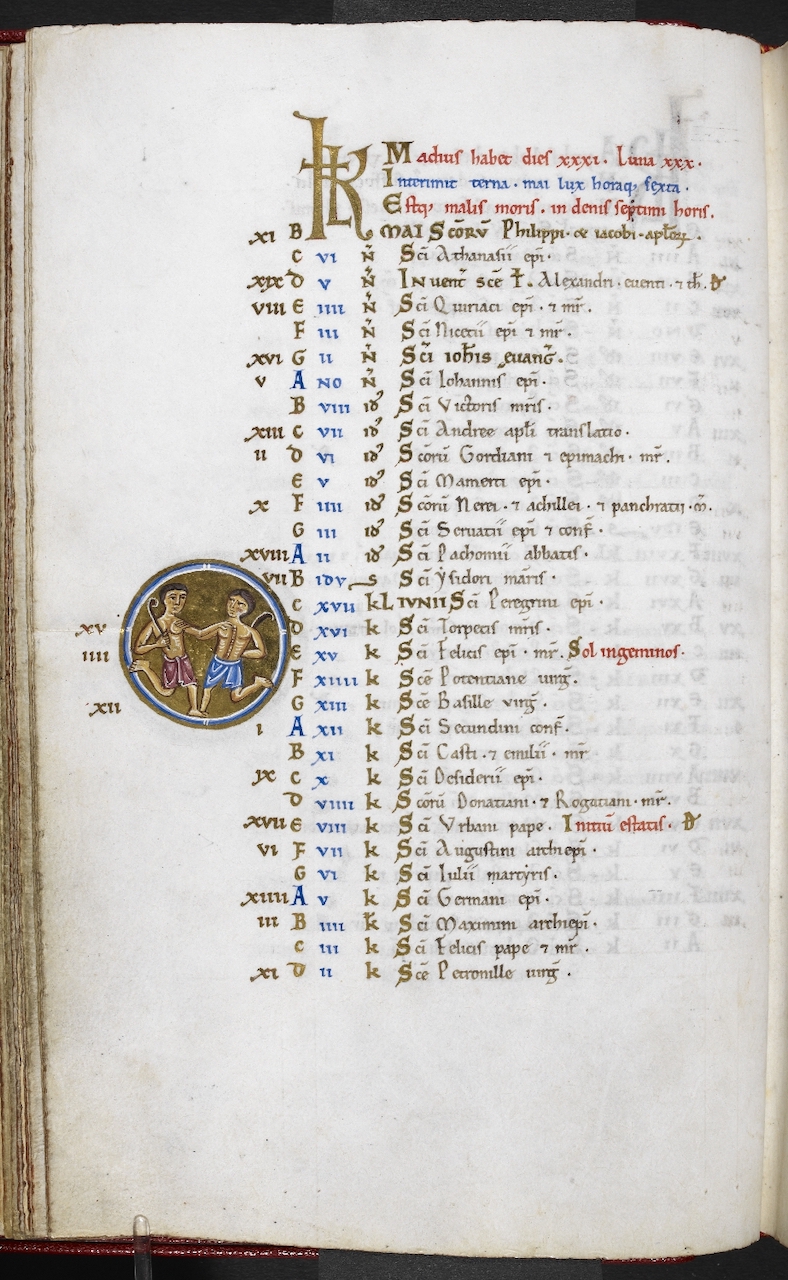 KL Madius habet dies xxxi. Luna xxx.
Interimit terna. mai lux horaq; sexta.
Estq; malis moris. in denis septimi horis.
xi B MAI Scōrū Philippi. et iacobi. apl̄oꝝ.
C vi N̄ Sc̄i Athanasii ep̄i.
xix D v N̄ Inuent̄ sc̄e ☩. Alexandri. euenti. ⁊ th̄. D̄
viii E iiii N̄ Sc̄i Quiriaci ep̄i. ⁊ mr̄.
F iii N̄ Sc̄i Nicetii ep̄i ⁊ mr̄.
xvi G ii N̄ Sc̄i ioh̄is euanḡ.
v A NO N̄ Sc̄i Iohannis ep̄i.
B viii id̄ Sc̄i Victoris mr̄is.
xiii C vii id̄ Sc̄i Andree apl̄i translatio.
ii D vi id̄ Scōrū Gordiani ⁊ epimachi. mr̄.
E v id̄ Sc̄i Mamerti ep̄i.
x F iiii id̄ Scōrū Nerei. ⁊ achillei. ⁊ panchratii. m̄.
G iii id̄ Sc̄i Seruatii ep̄i ⁊ conf̄.
xviii A ii id̄ Sc̄i Pachomii abbatis.
vii B idv s Sc̄i Ysidori mar̄is.
C xvii kL IVNII Sc̄i Peregrini ep̄i.
xv D xvi k Sc̄i Torpetis mr̄is.
iiii E xv k Sc̄i Felicis ep̄i. mr̄. Sol in geminos.
F xiiii k Sc̄e Potentiane uirḡ.
xii G xiii k Sc̄e Basille virḡ.
i A xii k Sc̄i Secundini conf̄.
B xi k Sc̄i Casti. ⁊ emilii. mr̄
ix C x k Sc̄i Desiderii ep̄i.
D viiii k Scōrū Donatiani. ⁊ Rogatiani. mr̄.
xvii E viii k Sc̄i Vrbani pape. Initiū estatis. D̄
vi F vii k Sc̄i Augustini archiep̄i.
G vi k Sc̄i Iulii martyris.
xiiii A v k Sc̄i Germani ep̄i.
iii B iiii k Sc̄i Maximini archiep̄i.
C iii k Sc̄i Felicis pape ⁊ mr̄.
xi D ii k Sc̄e Petronille uirḡ.